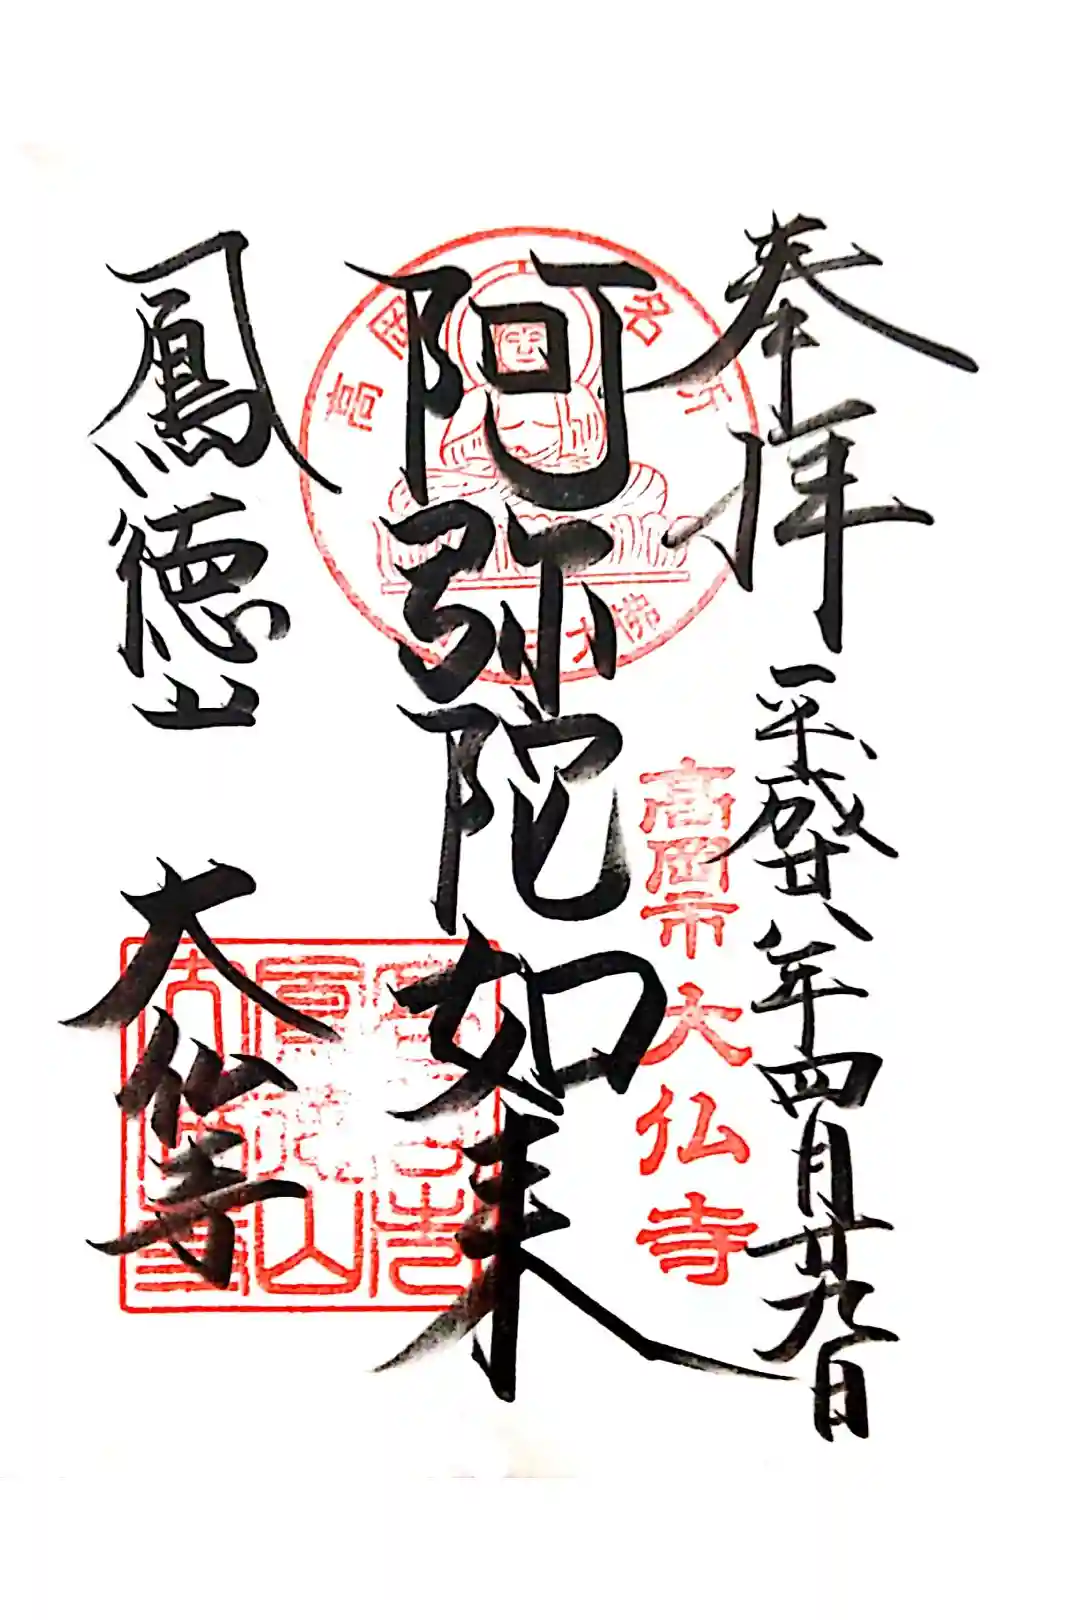 奉拝
平成廿八年四月廿九日
高岡市 大仏寺
阿弥陀如来
高岡名所
大佛
鳳徳山
大仏寺